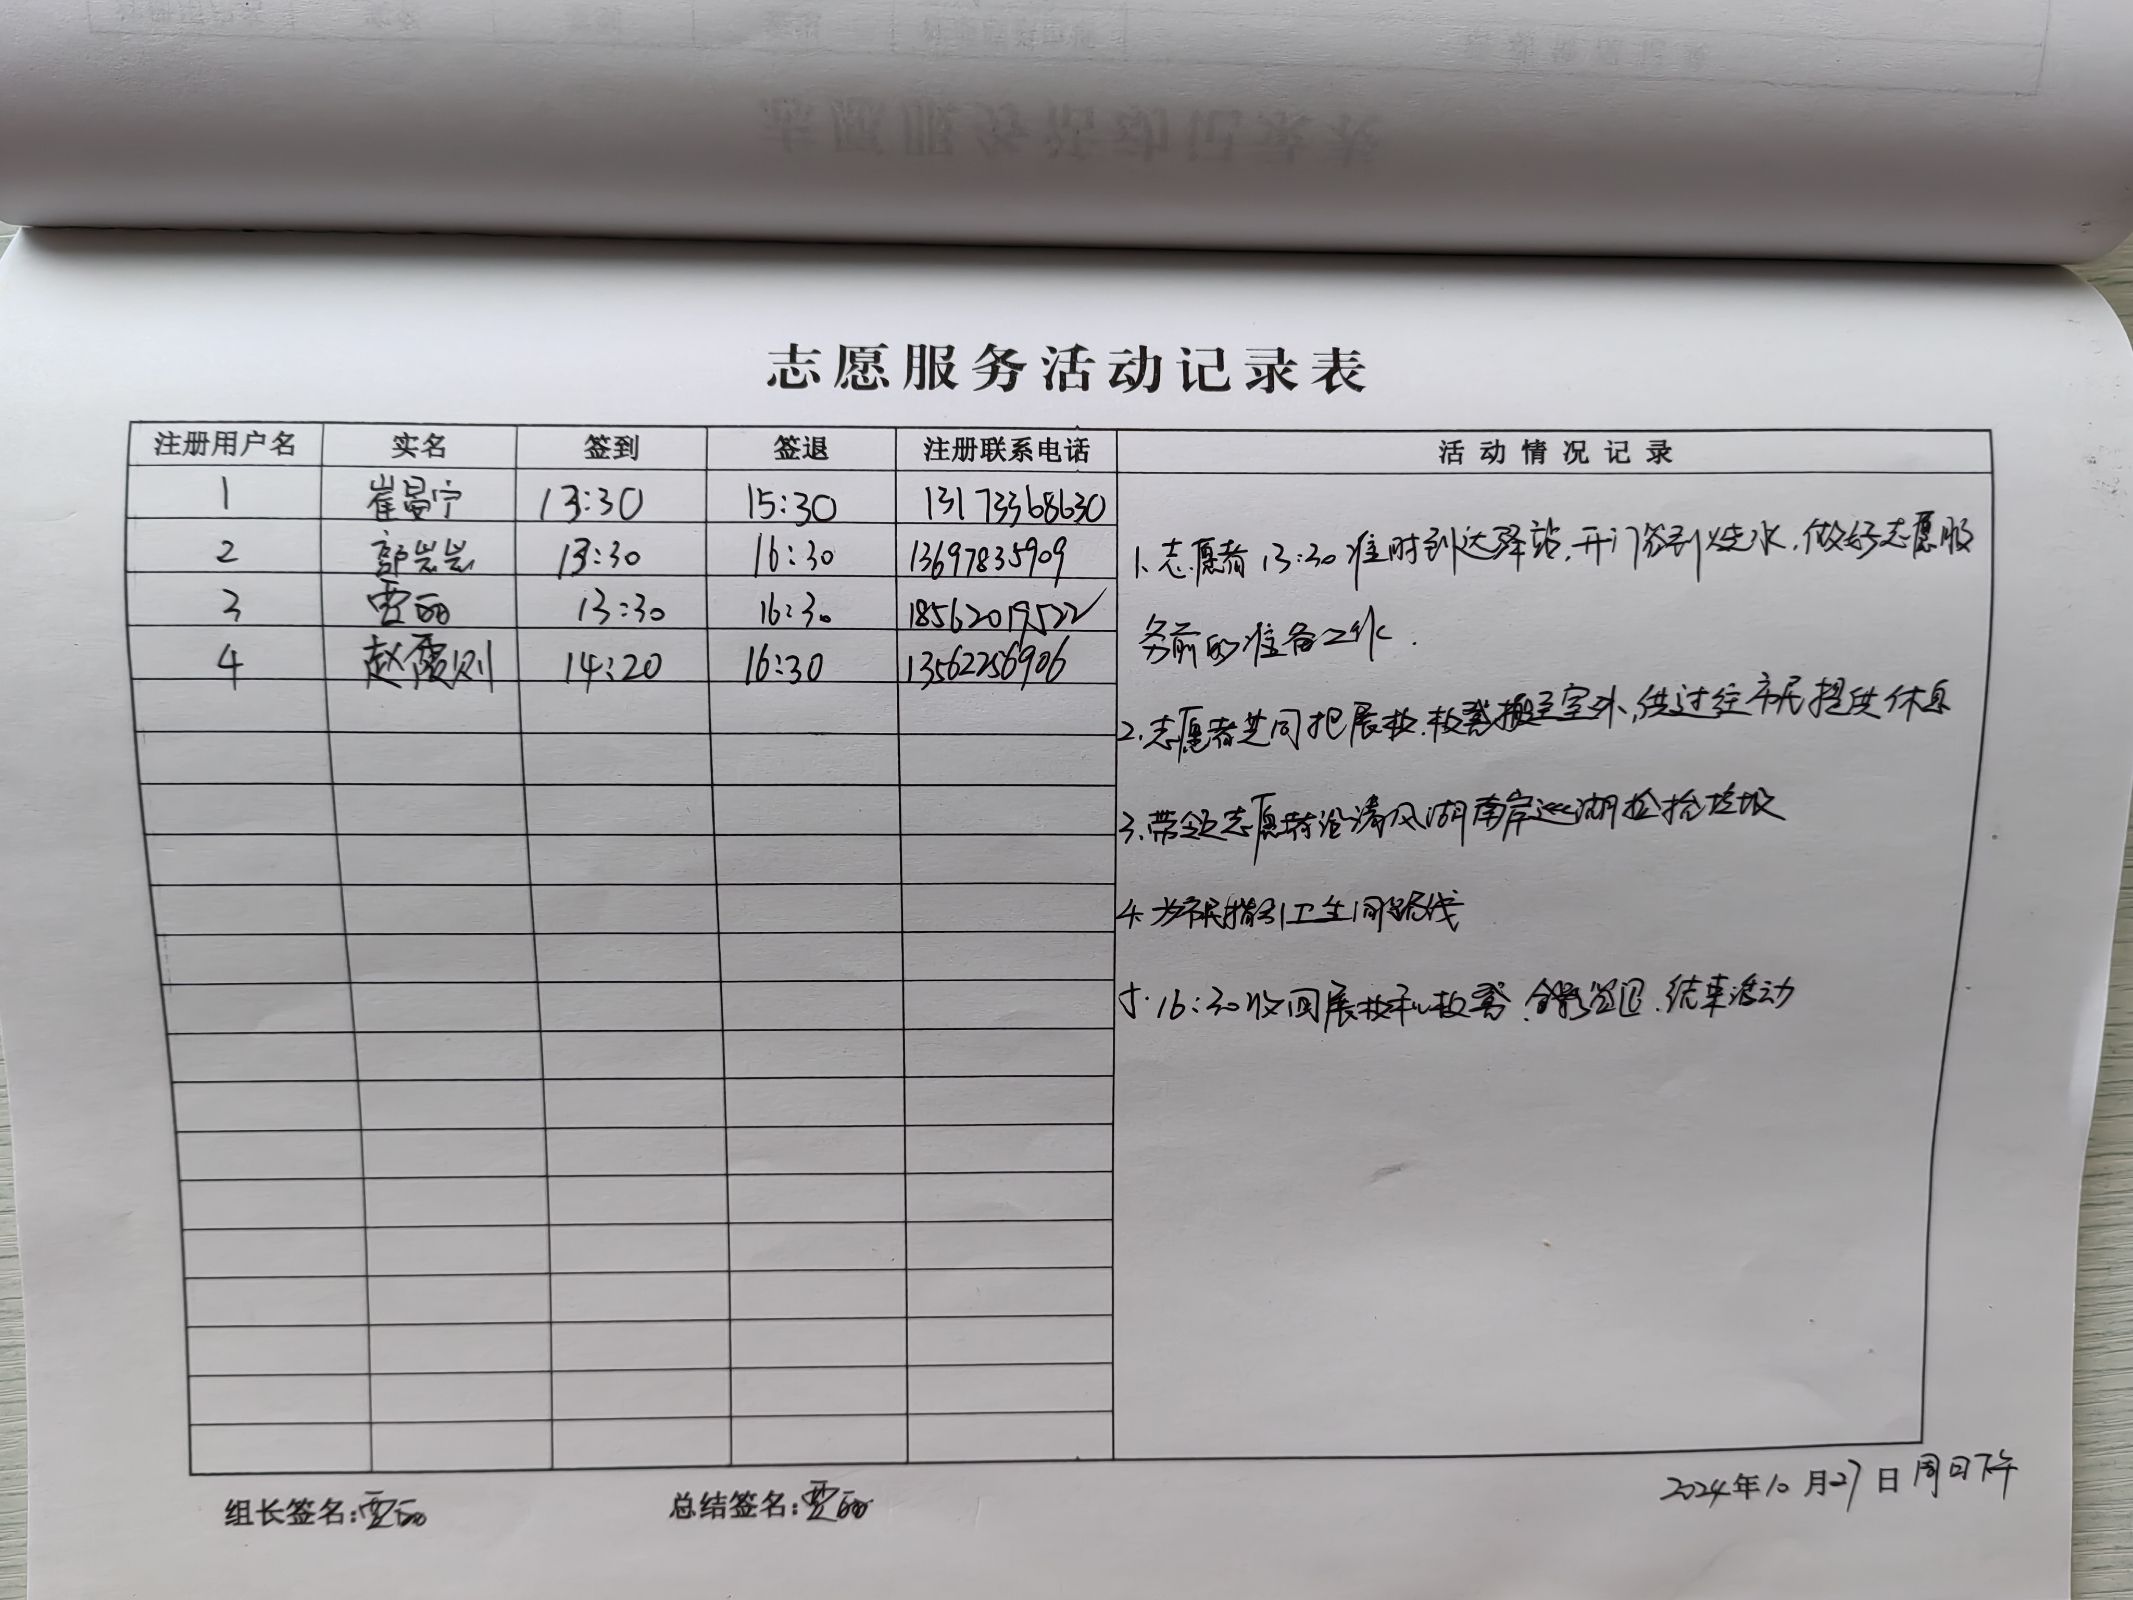 志愿服务活动记录表
注册用户名 实名 签到 签退 注册联系电话 活动情况记录
1 崔曼宁 13:30 15:30 13173368630
2 郭岩岩 13:30 16:30 13697835909
3 贾丽 13:30 16:30 18562019522
4 赵霞 14:20 16:30 13562256906
1.志愿者13:30准时到达驿站,开门签到烧水,做好志愿服
务前的准备工作.
2.志愿者共同把展板.板凳搬至室外,供过往市民提供休息
3.带领志愿者沿清风湖南岸巡湖捡拾垃圾
4.为市民指引卫生间路线
5.16:30收回展板和板凳,合影签退.结束活动
组长签名:贾丽 总结签名:贾丽 2024年10月27日周日下午